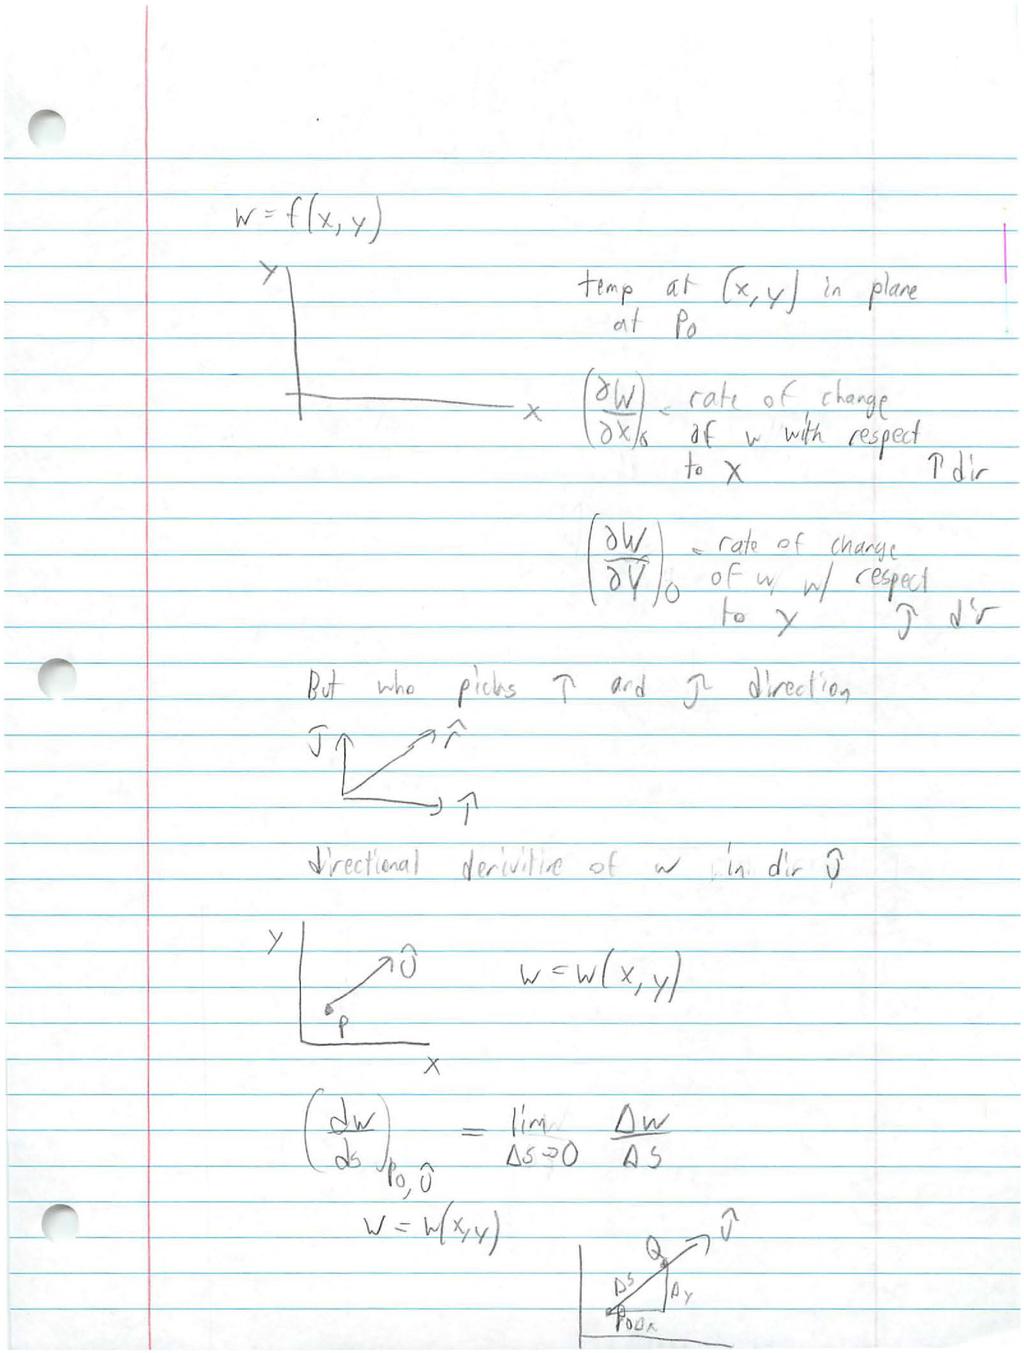 w = f(x, y)
y
x
temp at (x, y) in plane
at P₀
(∂w/∂x)₀ = rate of change
of w with respect
to x î dir
(∂w/∂y)₀ = rate of change
of w, w/ respect
to y ĵ dir
But who picks î and ĵ direction
ĵ r̂
î
directional derivitive of w in dir û
y
û
P
x
w = w(x, y)
(dw/ds)P₀, û = lim Δs→0 Δw/Δs
w = w(x, y)
û
Q
Δs
Δy
P₀ Δx